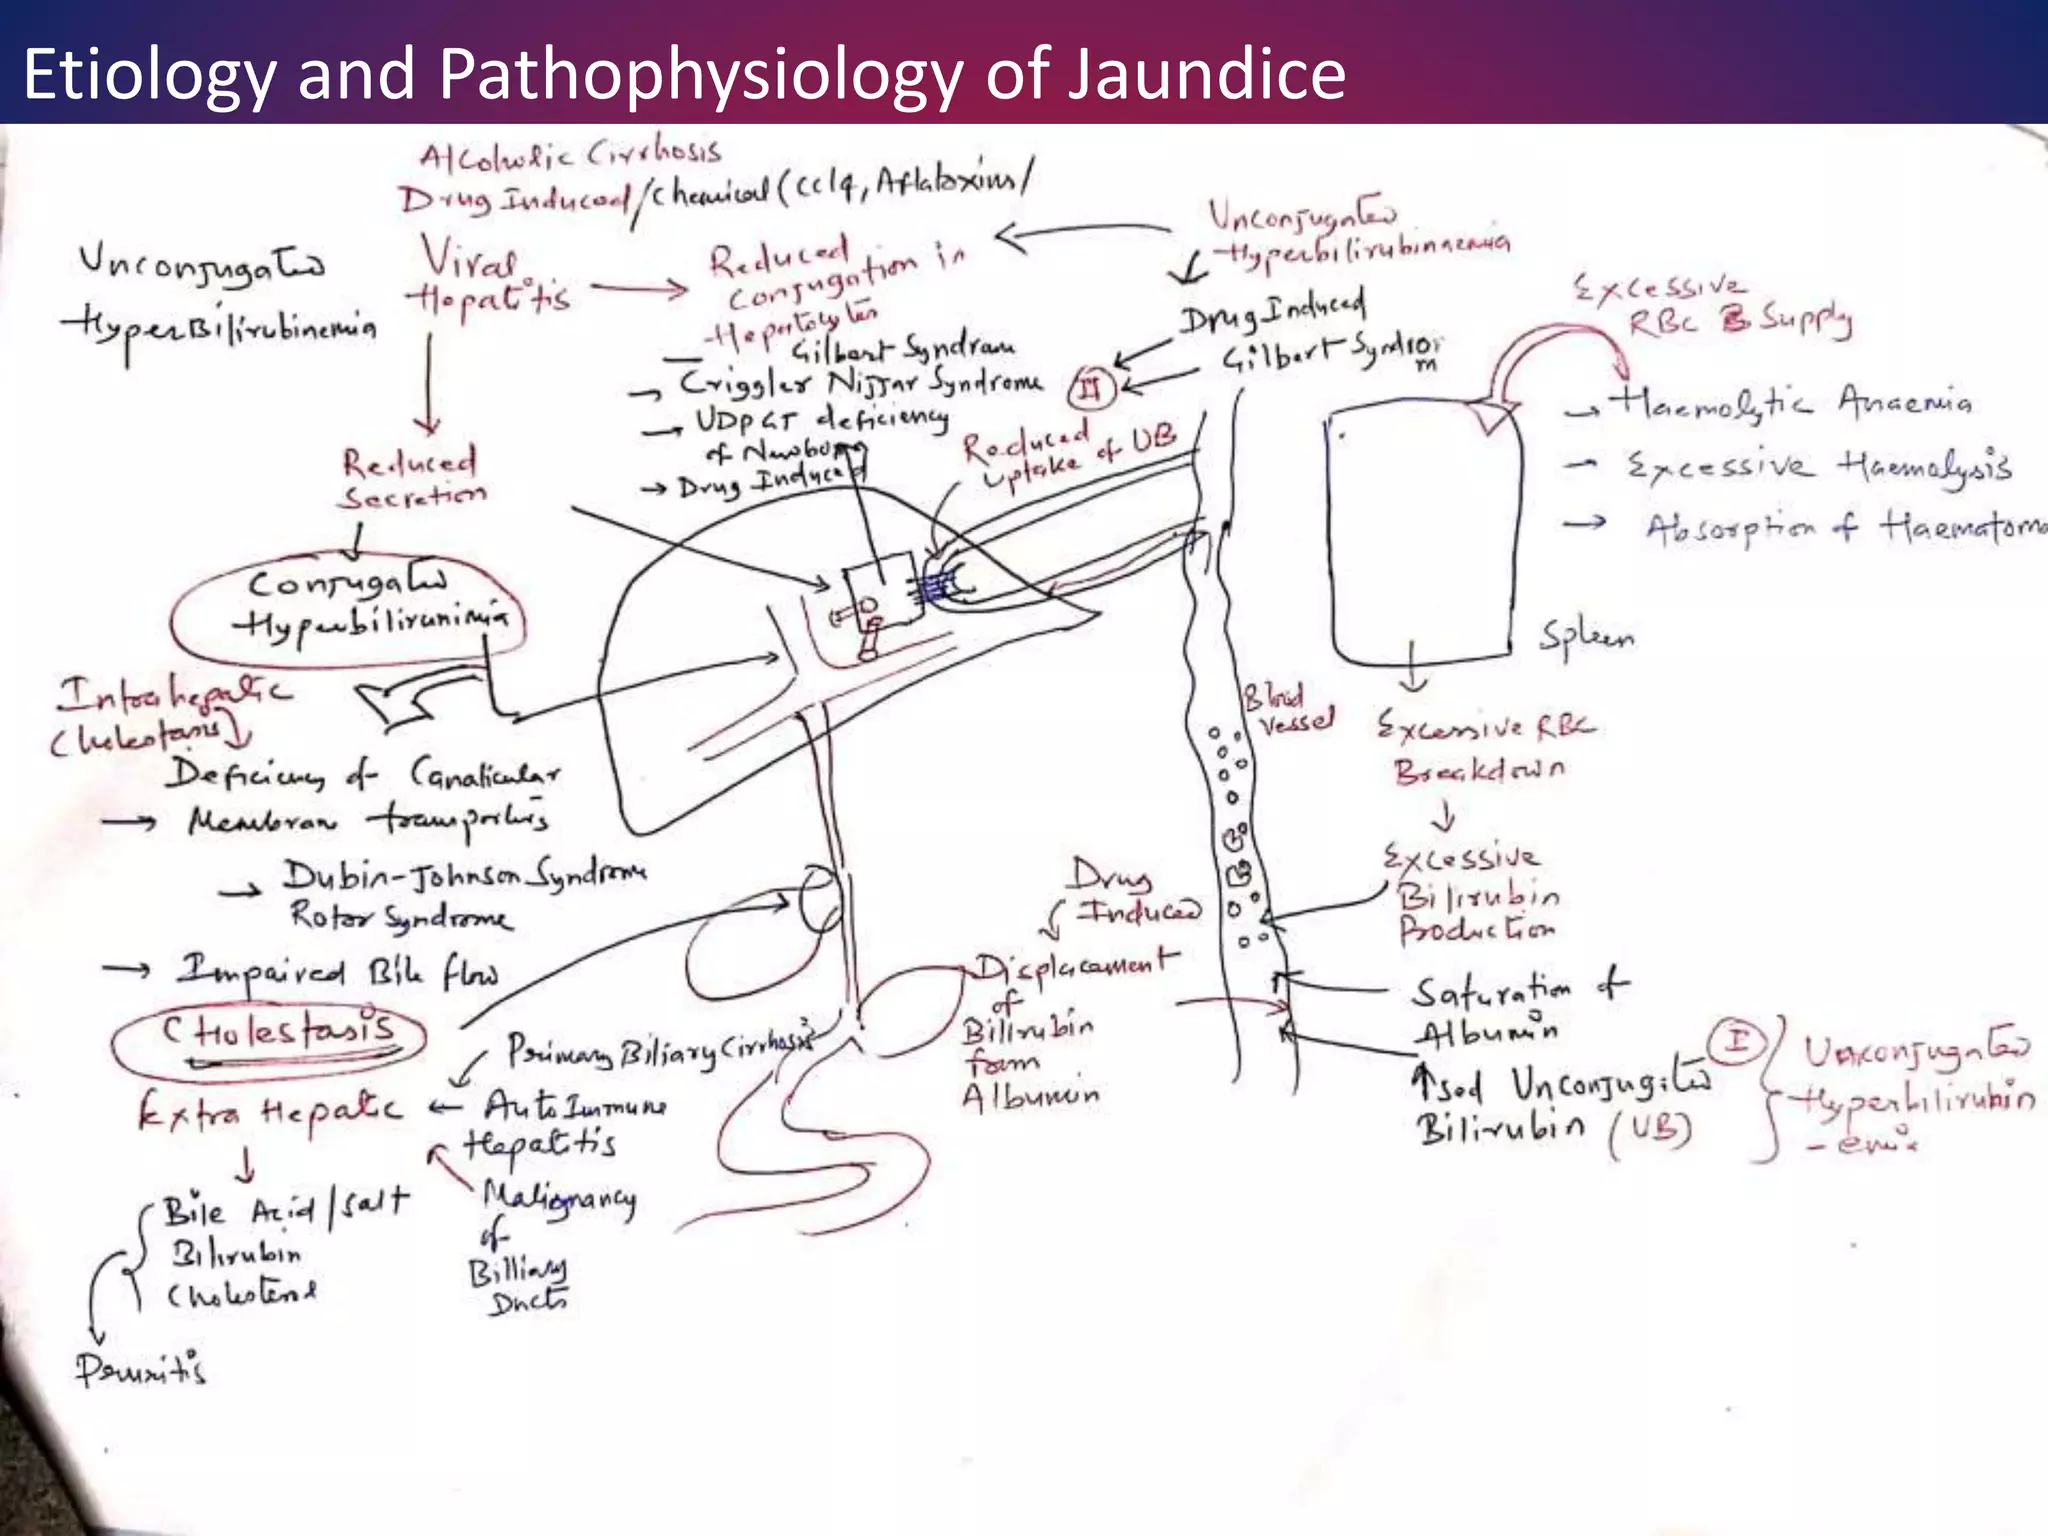 Etiology and Pathophysiology of Jaundice
Alcoholic Cirrhosis
Drug Induced/Chemical (CCl4, Aflatoxins/
Unconjugated
HyperBilirubinemia
Viral
Hepatitis
Reduced
Conjugation in
Hepatocytes
Gilbert Syndrom
Criggler Nijjar Syndrome
UDPGT deficiency
of Newborn
Drug Induced
Unconjugated
Hyperbilirubinaemia
Drug Induced
Gilbert Syndrom
II
Reduced
uptake of UB
Excessive
RBC Supply
Haemolytic Anaemia
Excessive Haemolysis
Absorption of Haematoma
Spleen
Reduced
Secretion
Conjugated
Hyperbilirunimia
Intrahepatic
Cholestasis
Deficiency of Canalicular
Membran transporters
Dubin-Johnson Syndrome
Rotor Syndrome
Impaired Bile flow
CHolestasis
Extra Hepatic
Primary Biliary Cirrhosis
AutoImmune
Hepatitis
Malignancy
of
Billiary
Ducts
Bile Acid/Salt
Bilirubin
Cholesterol
Pruritis
Blood
Vessel
Excessive RBC
Breakdown
Excessive
Bilirubin
Production
Drug
Induced
Displacement
of
Bilirubin
from
Albumin
Saturation of
Albumin
Unconjugated
Bilirubin (UB)
I
Unconjugated
Hyperbilirubin
-emia